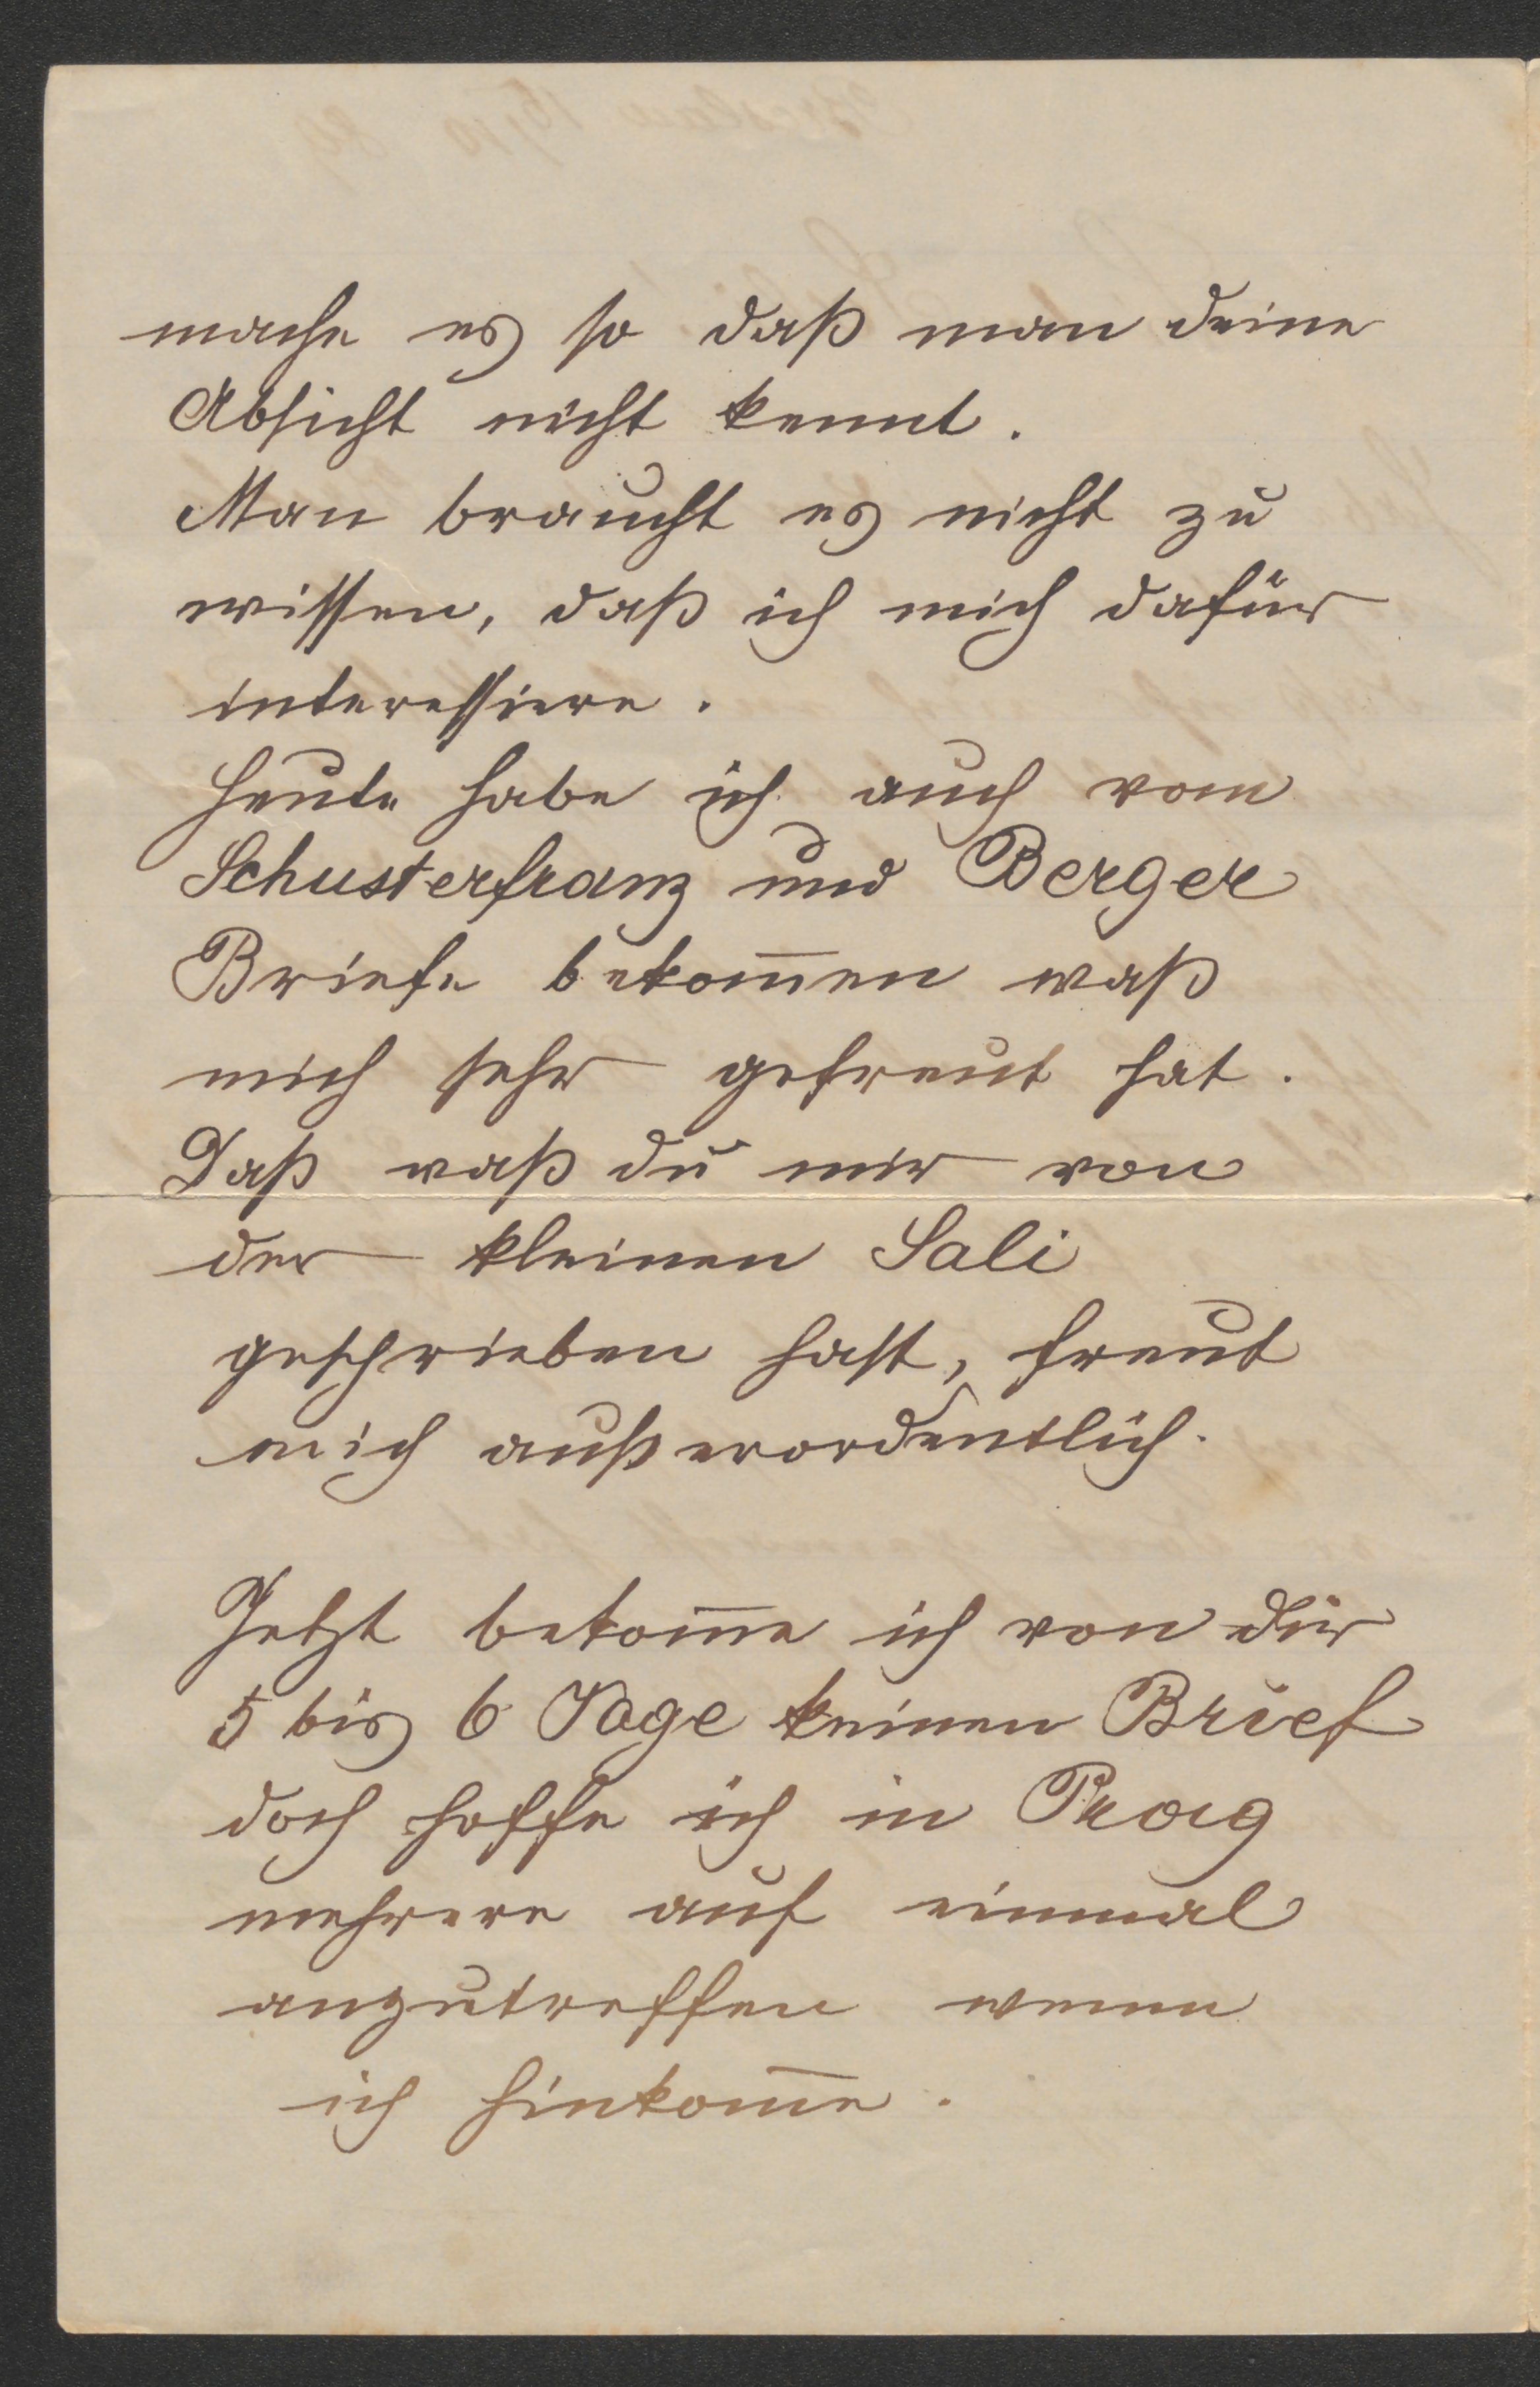 mache es so daß man deine
Absicht nicht kennt.
Man braucht es nicht zu
wissen, daß ich mich dafür
interessiere.
Heute habe ich auch vom
Schusterfranz und Berger
Briefe bekom̅en waß
mich sehr gefreut hat.
Daß waß du mir von
der kleinen Sali
geschrieben hast, freut
mich außerordentlich.
Jetzt bekom̅e ich von dir
5 bis 6 Tage keinen Brief
doch hoffe ich in Prag
mehrere auf einmal
anzutreffen wenn
ich hinkom̅e.